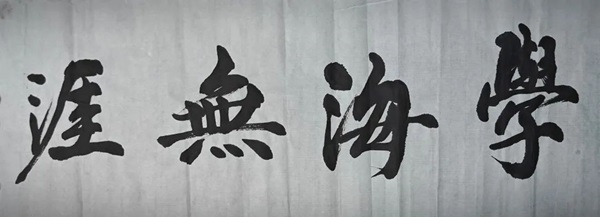 學海無涯